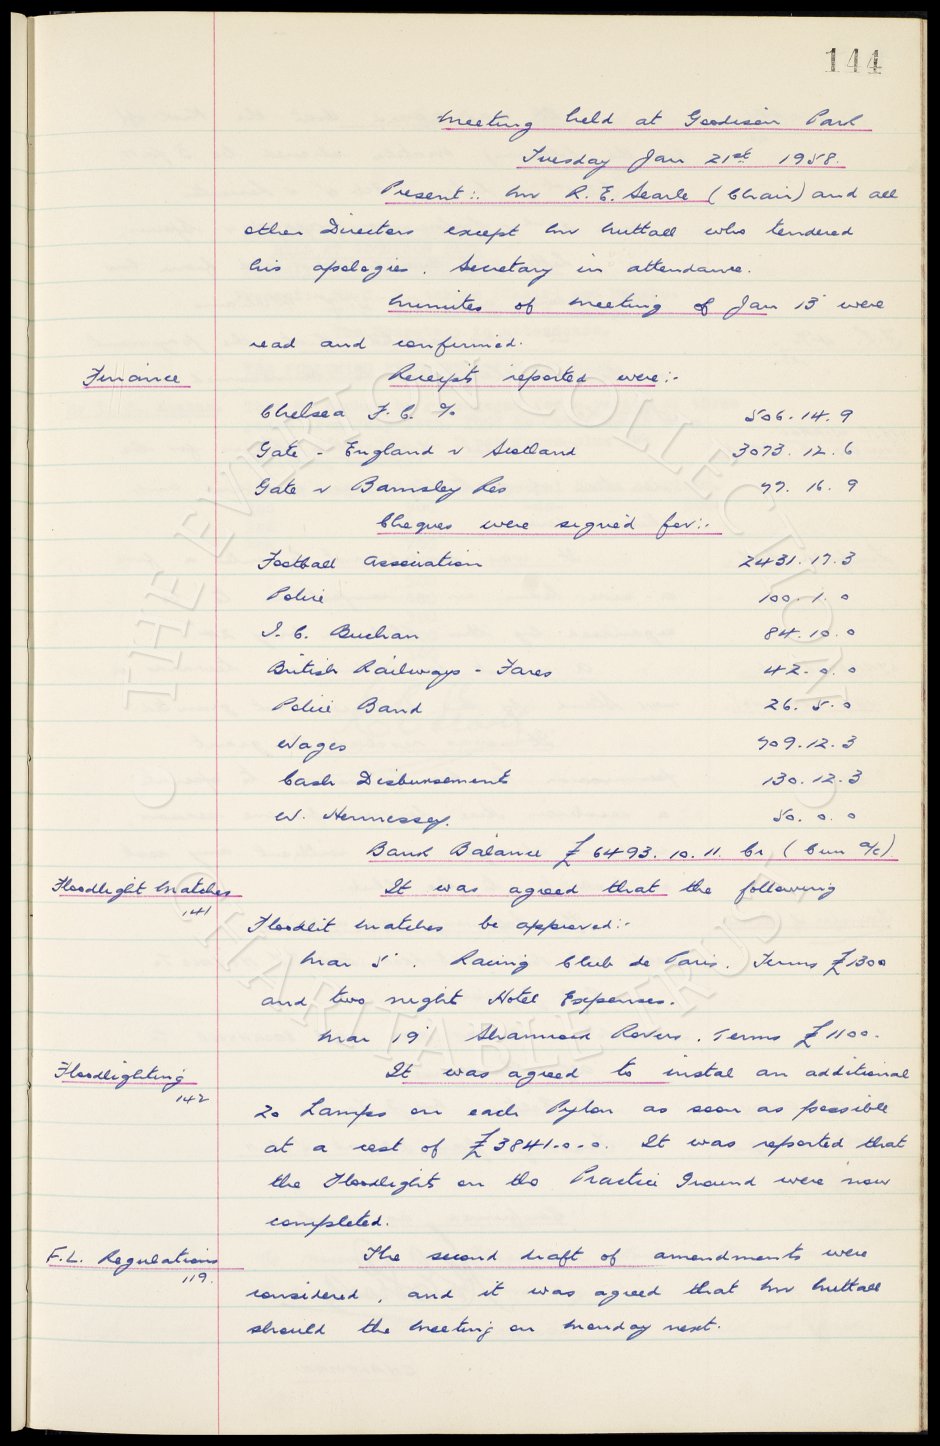 144
Meeting held at Goodison Park
Tuesday Jan 21st 1958.
Present:. Mr R. E. Searle (Chair) and all
other Directors except Mr Nuttall who tendered
his apologies. Secretary in attendance.
Minutes of Meeting of Jan 13 were
read and confirmed.
Finance
Receipts reported were:-
Chelsea F. C. % 506. 14. 9
Gate - England v Scotland 3073. 12. 6
Gate v Barnsley Res 77. 16. 9
Cheques were signed for:-
Football Association 2431. 17. 3
Police 100. 1. 0
J. C. Buchan 84. 10. 0
British Railways - Fares 42. 0. 0
Police Band 26. 5. 0
Wages 709. 12. 3
Cash Disbursements 130. 12. 3
W. Hennessey. 50. 0. 0
Bank Balance £6493. 10. 11. Cr (Curr a/c)
Floodlight Matches
141
It was agreed that the following
Floodlit matches be approved:-
Mar 5. Racing Club de Paris. Terms £1300
and two night Hotel Expenses.
Mar 19 Shamrock Rovers. Terms £1100.
Floodlighting
142
It was agreed to instal an additional
20 Lamps on each Pylon as soon as possible
at a cost of £3841.0.0. It was reported that
the Floodlights on the Practice Ground were now
completed.
F.L. Regulations
119.
The second draft of amendments were
considered, and it was agreed that Mr Nuttall
should the meeting on Monday next.
© THE EVERTON COLLECTION CHARITABLE TRUST